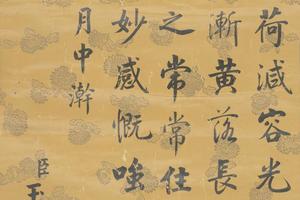 荷減容光
漸黄落長
之常常住
妙感慨嗤
月中澣
臣玉